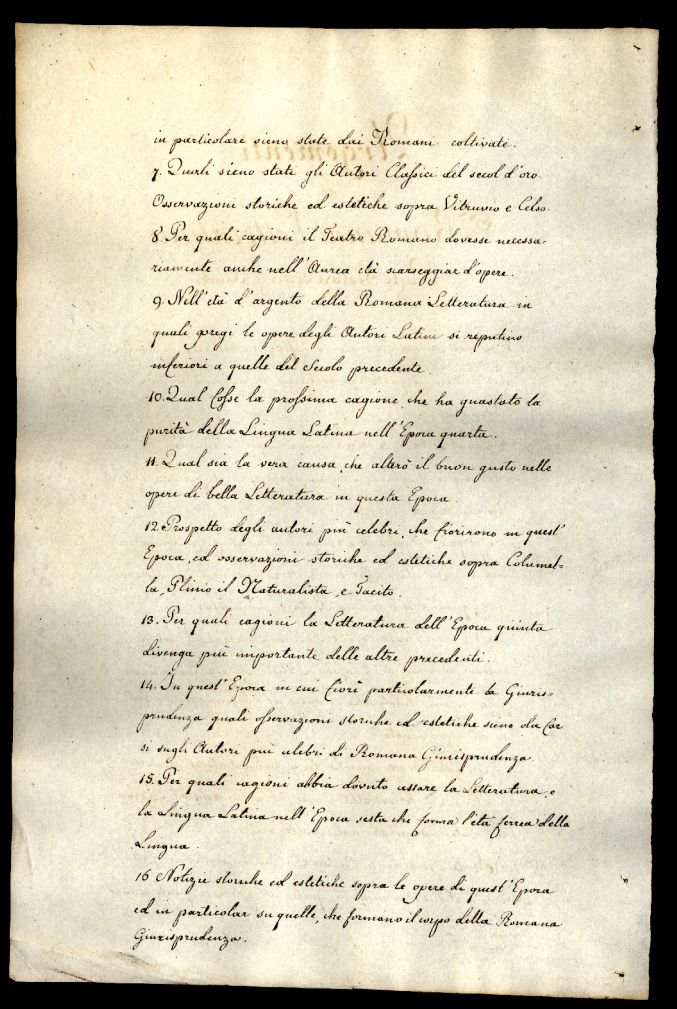 in particolare sieno state dai Romani coltivate.
7. Quali sieno stati gli Autori Classici del secol d'oro.
Osservazioni storiche ed estetiche sopra Vitruvio e Celso.
8. Per quali cagioni il Teatro Romano dovesse necessa-
riamente anche nell'Aurea età scarseggiar d'opere.
9. Nell'età d'argento della Romana Letteratura in
quali pregi le opere degli Autori Latini si reputino
inferiori a quelle del Secolo precedente.
10. Qual fosse la prossima cagione, che ha guastato la
purità della Lingua Latina nell'Epoca quarta.
11. Qual sia la vera causa, che alterò il buon gusto nelle
opere di bella Letteratura in questa Epoca.
12. Prospetto degli autori più celebri, che fiorirono in quest'
Epoca, ed osservazioni storiche ed estetiche sopra Columel-
la, Plinio il Naturalista, e Tacito.
13. Per quali cagioni la Letteratura dell'Epoca quinta
divenga più importante delle altre precedenti.
14. In quest'Epoca in cui fiorì particolarmente la Giuris-
prudenza quali osservazioni storiche ed estetiche sieno da far
si sugli Autori più celebri di Romana Giurisprudenza
15. Per quali cagioni abbia dovuto cessare la Letteratura, e
la Lingua Latina nell'Epoca sesta che forma l'età ferrea della
Lingua.
16 Notizie storiche ed estetiche sopra le opere di quest'Epoca
ed in particolar su quelle, che formano il corpo della Romana
Giurisprudenza.